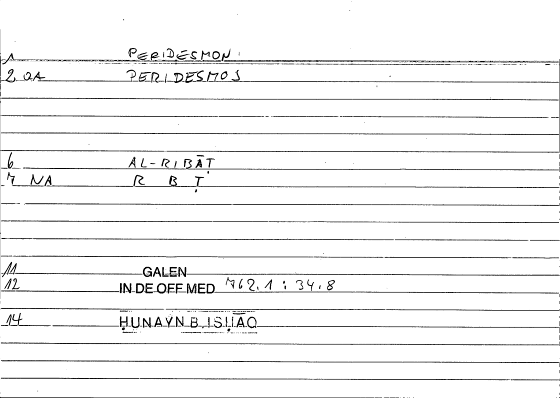 1 PERIDESMON
2 0A PERIDESMOS
6 AL-RIBĀṬ
7 NA R B Ṭ
11 GALEN
12 IN DE OFF MED 762.1 : 34.8
14 ḤUNAYN B. ISḤĀQ